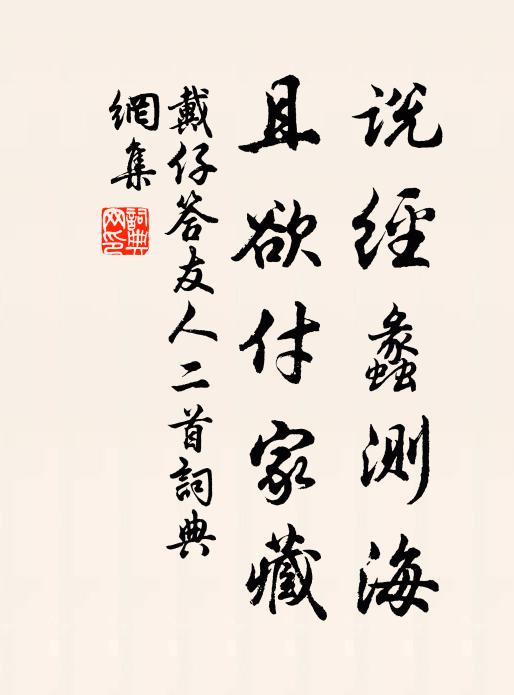 说經蠡测海
且欲付家藏
戴仔答友人二首詞典
網集
詞典网印